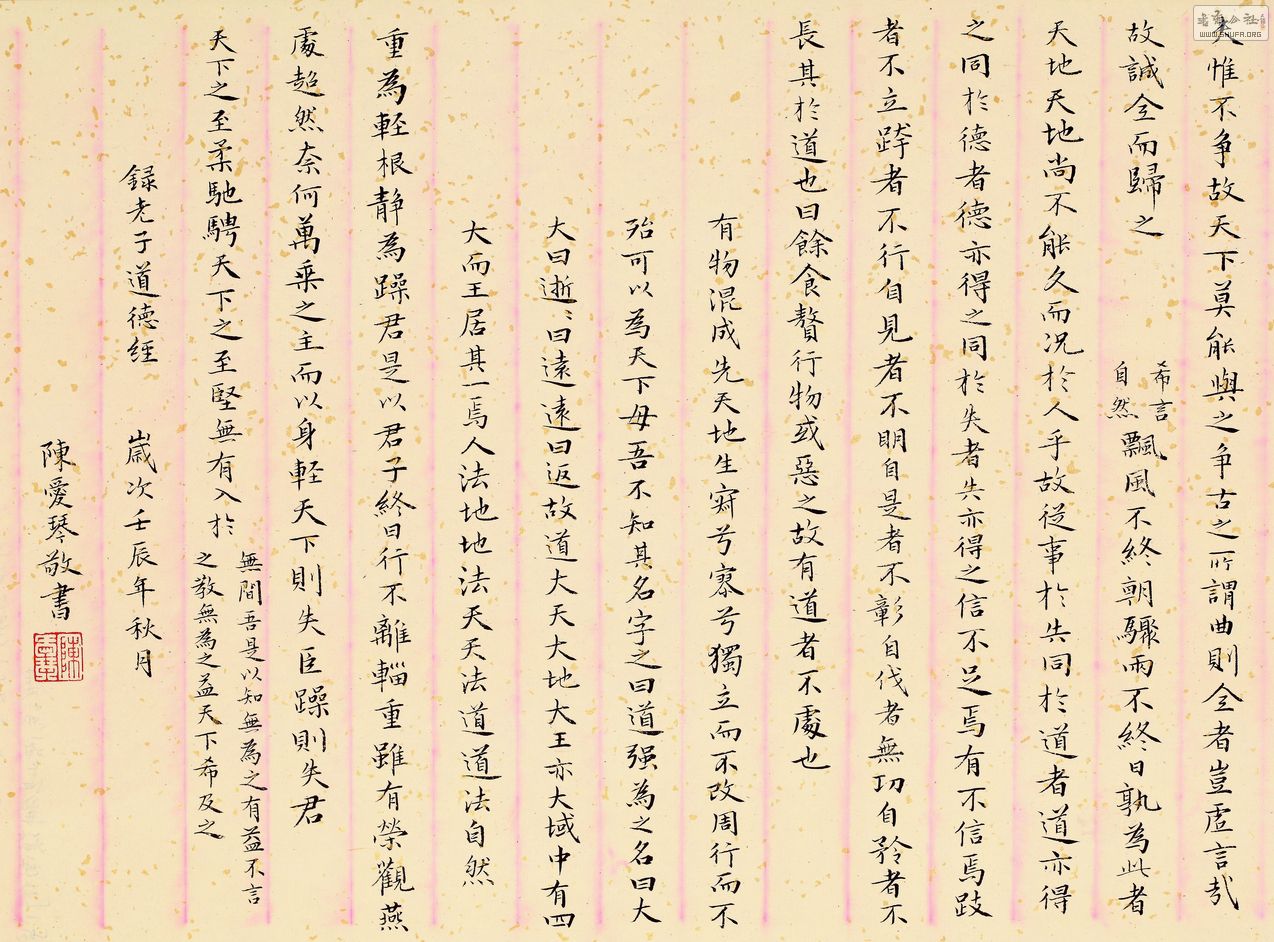 夫惟不争故天下莫能與之争古之所謂曲則全者豈虚言哉
故誠全而歸之
希言
自然
飄風不終朝驟雨不終日孰為此者
天地天地尚不能久而况於人乎故従事於失同於道者道亦得
之同於德者德亦得之同於失者失亦得之信不足焉有不信焉跂
者不立跨者不行自見者不明自是者不彰自伐者無功自矜者不
長其於道也曰餘食贅行物或惡之故有道者不處也
有物混成先天地生寂兮寥兮獨立而不改周行而不
殆可以為天下母吾不知其名字之曰道强為之名曰大
大曰逝、曰遠遠曰返故道大天大地大王亦大域中有四
大而王居其一焉人法地地法天天法道道法自然
重為軽根静為躁君是以君子終日行不離輜重雖有榮觀燕
處超然奈何萬乗之主而以身軽天下則失臣躁則失君
天下之至柔馳騁天下之至堅無有入於
無間吾是以知無為之有益不言
之教無為之益天下希及之
録老子道德經 歲次壬辰年秋月
陳愛琴敬書
WWW.SHUFA.ORG